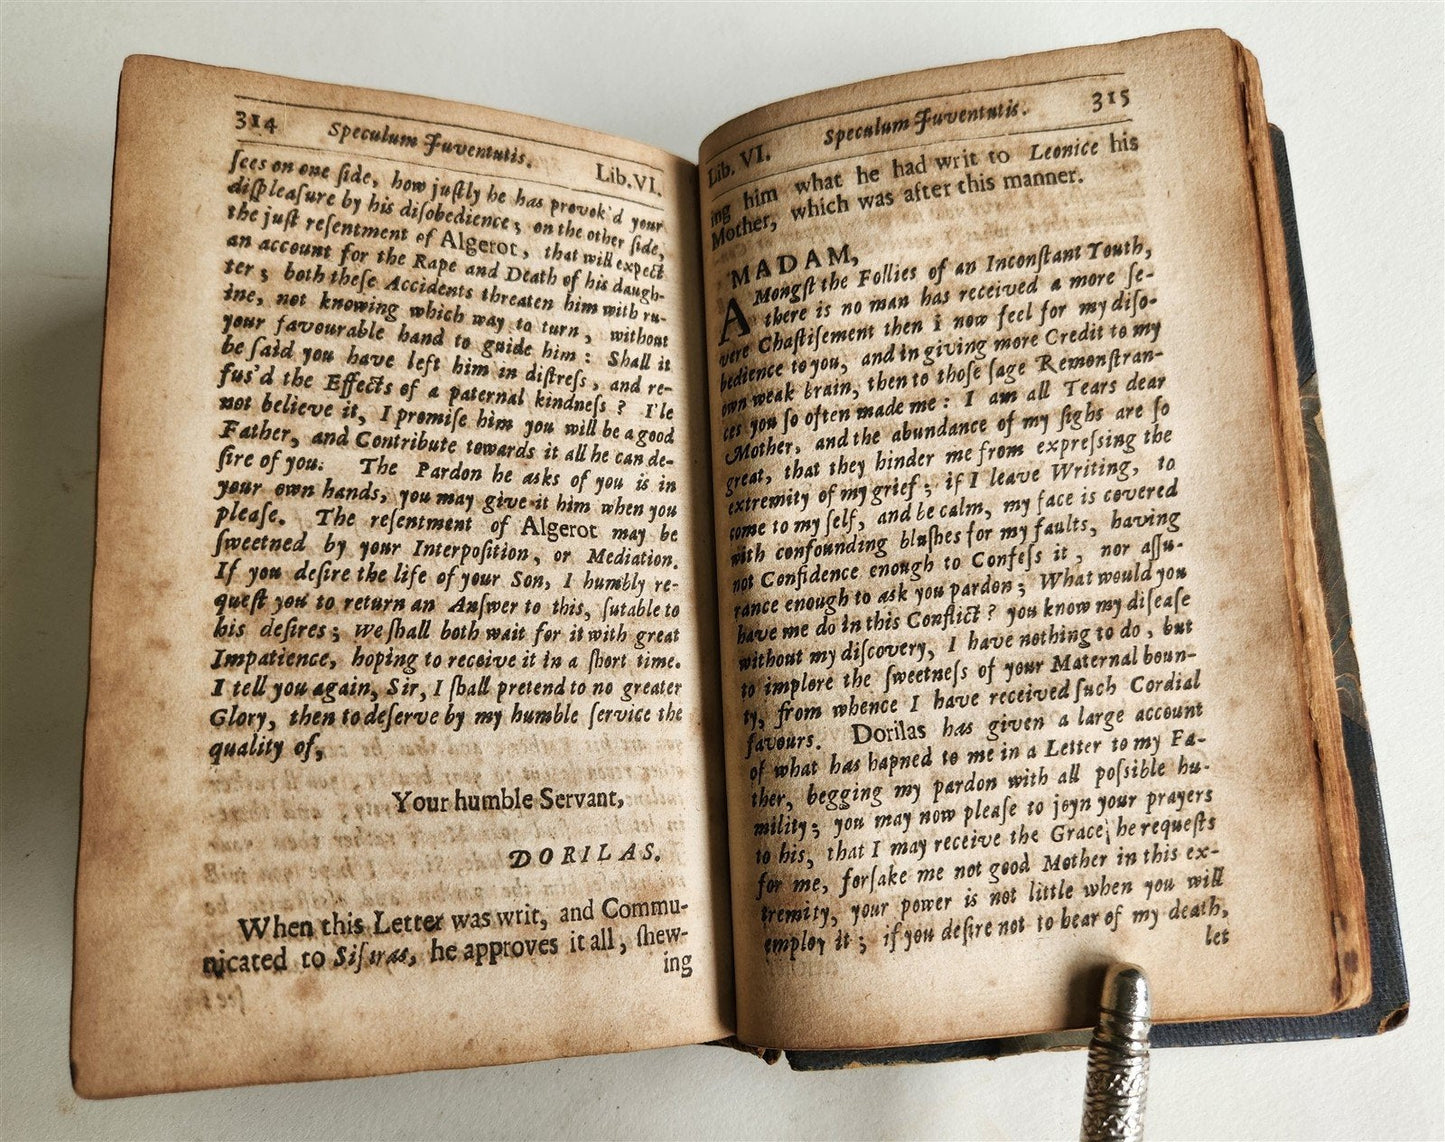 314 Speculum Juventutis. Lib.VI.
ſees on one ſide, how juſtly he has provok'd your
diſpleaſure by his diſobedience; on the other ſide,
the juſt reſentment of Algerot, that will expect
an account for the Rape and Death of his daugh-
ter; both theſe Accidents threaten him with ru-
ine, not knowing which way to turn, without
your favourable hand to guide him: Shall it
be ſaid you have left him in diſtreſs, and re-
fus'd the Effects of a paternal kindneſs? I'le
not believe it, I promiſe him you will be a good
Father, and Contribute towards it all he can de-
ſire of you. The Pardon he asks of you is in
your own hands, you may give it him when you
pleaſe. The reſentment of Algerot may be
ſweetned by your Interpoſition, or Mediation.
If you deſire the life of your Son, I humbly re-
queſt you to return an Anſwer to this, ſutable to
his deſires; We ſhall both wait for it with great
Impatience, hoping to receive it in a ſhort time.
I tell you again, Sir, I ſhall pretend to no greater
Glory, then to deſerve by my humble ſervice the
quality of,
Your humble Servant,
DORILAS.
When this Letter was writ, and Commu-
nicated to Siſtras, he approves it all, ſhew-
ing
Lib. VI. Speculum Juventutis. 315
ing him what he had writ to Leonice his
Mother, which was after this manner.
MADAM,
AMongſt the Follies of an Inconſtant Youth,
there is no man has received a more ſe-
vere Chaſtiſement then i now feel for my diſo-
bedience to you, and in giving more Credit to my
own weak brain, then to thoſe ſage Remonſtran-
ces you ſo often made me: I am all Tears dear
Mother, and the abundance of my ſighs are ſo
great, that they hinder me from expreſſing the
extremity of my grief; if I leave Writing, to
come to my ſelf, and be calm, my face is covered
with confounding bluſhes for my faults, having
not Confidence enough to Confeſs it, nor aſſu-
rance enough to ask you pardon; What would you
have me do in this Conflict? you know my diſeaſe
without my diſcovery, I have nothing to do, but
to implore the ſweetneſs of your Maternal boun-
ty, from whence I have received ſuch Cordial
favours. Dorilas has given a large account
of what has hapned to me in a Letter to my Fa-
ther, begging my pardon with all poſſible hu-
mility; you may now pleaſe to joyn your prayers
to his, that I may receive the Grace, he requeſts
for me, forſake me not good Mother in this ex-
tremity, your power is not little when you will
employ it; if you deſire not to hear of my death,
let